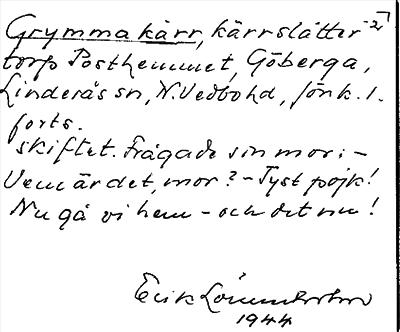 Grymma kärr, kärrslåtter -2-
torp Posthemmet, Göberga,
Linderås sn, N. Vedbohd, Jönk. l.
forts.
skiftet. Frågade sin mor: -
Vem är det, mor? - Tyst pojk!
Nu gå vi hem - och det nu!
Erik
1944